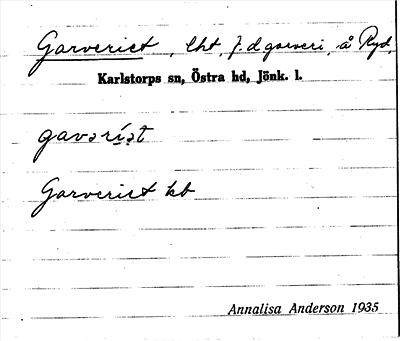 Garveriet, lht, f.d. garveri, å Ryd,
Karlstorps sn, Östra hd, Jönk. l.
gavəríət
Garveriet kb
Annalisa Anderson 1935